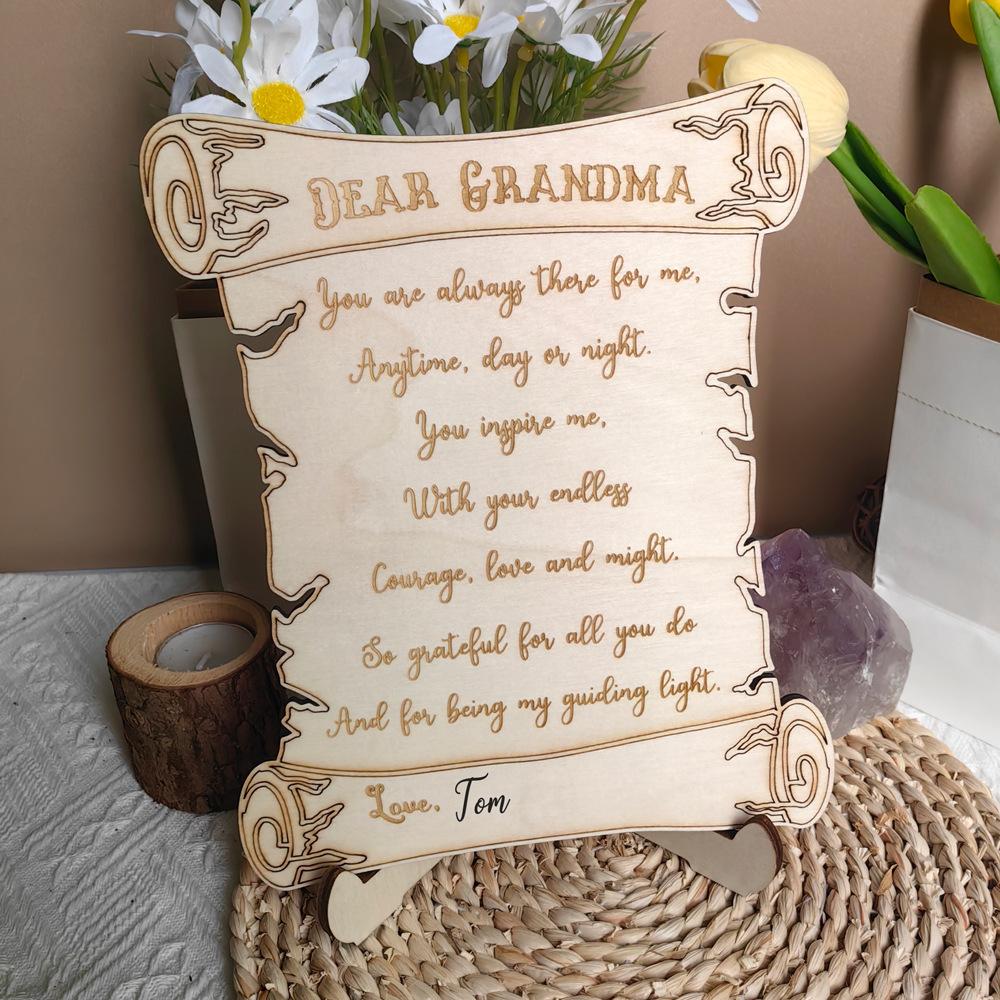 DEAR GRANDMA
You are always there for me,
Anytime, day or night.
You inspire me,
With your endless
Courage, love and might.
So grateful for all you do
And for being my guiding light.
Love, Tom